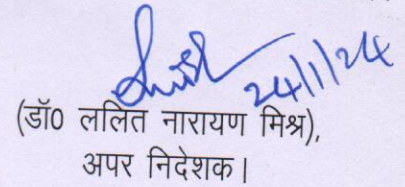 24/1/24
(डॉ0 ललित नारायण मिश्र),
अपर निदेशक।